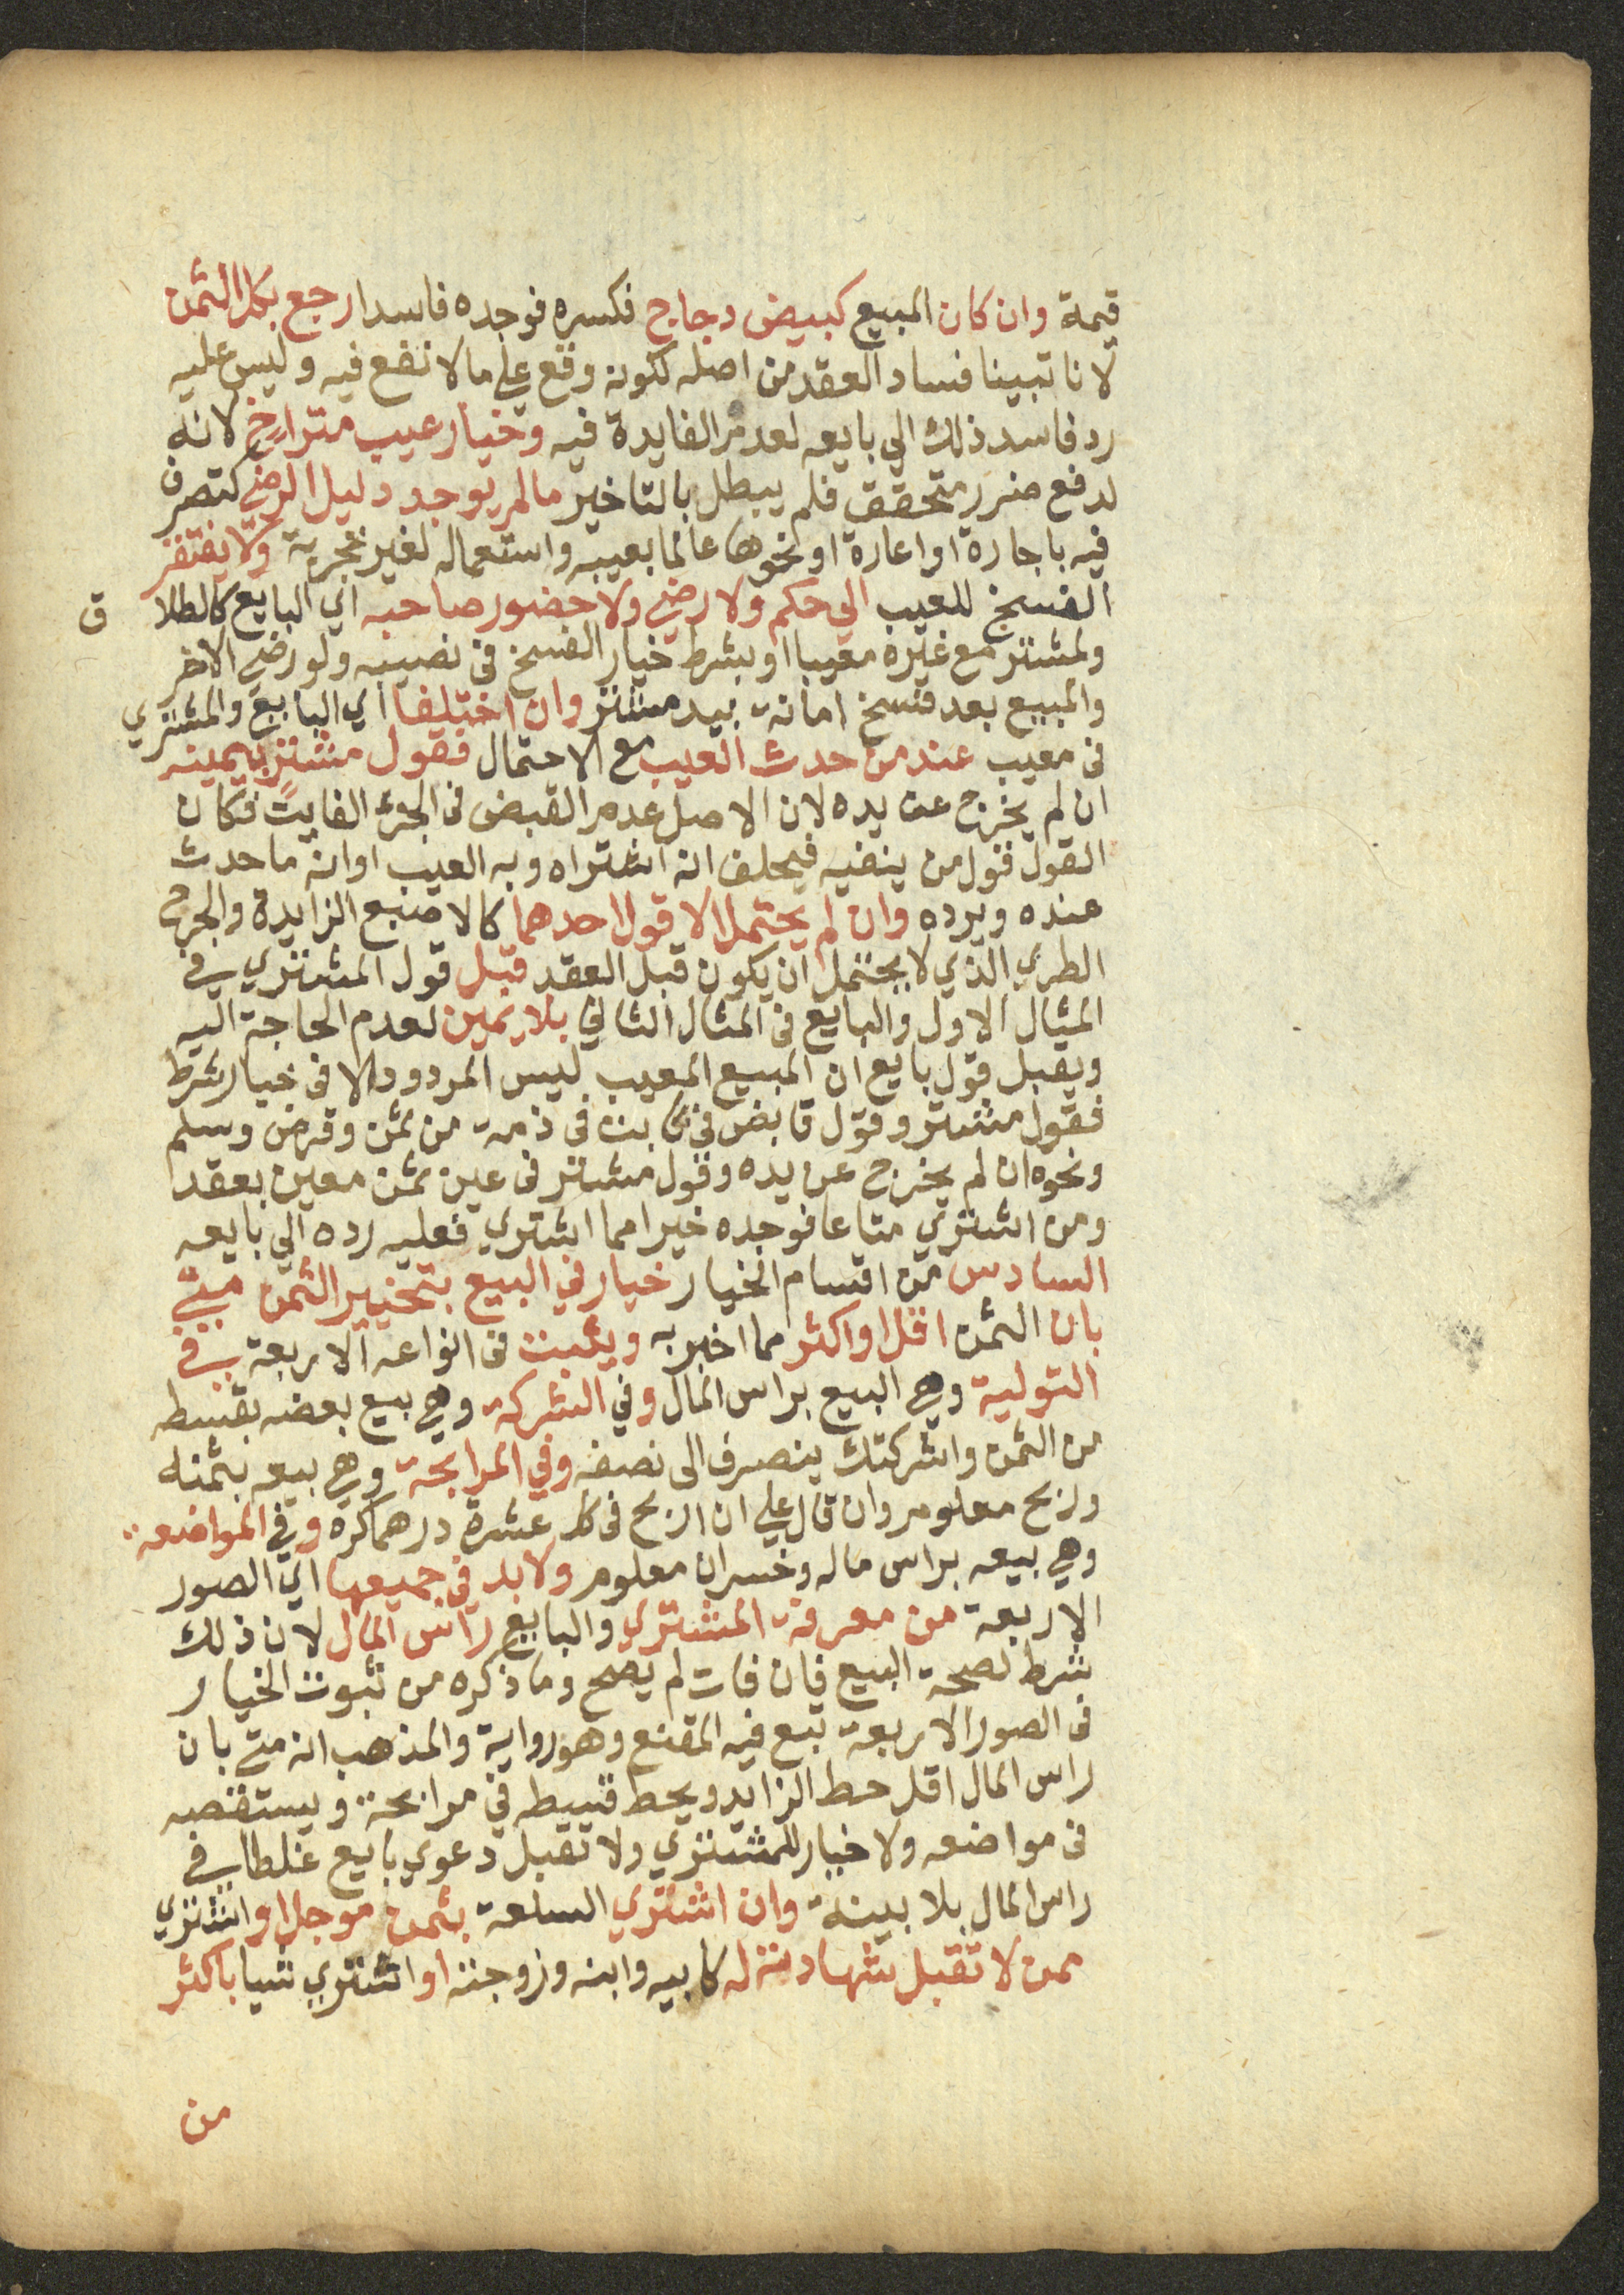 قيمة وان كان المبيع كبيض دجاج فكسره فوجده فاسدا رجع بكل الثمن
لانا تبينا فساد العقد من اصله لكونه وقع علي ما لا نفع فيه وليس عليه
رد فاسد ذلك الي بايعه لعدم الفايدة فيه وخيار عيب متراخ لانه
لدفع ضرر متحقق فلم يبطل بالتاخير ما لم يوجد دليل الرضي كتصرف
فيه باجارة او اعارة او نحوها عالما بعيبه واستعماله لغير تجربة ولا يفتقر
الفسخ للعيب الي حكم ولا رضي ولا حضور صاحبه اي البايع كالطلا ق
ولمشتر مع غيره معيبا او بشرط خيار الفسخ فى نصيبه ولو رضي الاخر
والمبيع بعد فسخ امانة بيد مشتر وان اختلفا اي البايع والمشتري
فى معيب عند من حدث العيب مع الاحتمال فقول مشتر بيمينه
ان لم يخرج عن يده لان الاصل عدم القبض فى الجزء الفايت فكان
القول قول من ينفيه فيحلف انه اشتراه وبه العيب او انه ما حدث
عنده ويرده وان لم يحتمل الا قول احدهما كالاصبع الزايدة والجرح
الطري الذي لا يحتمل ان يكون قبل العقد قبل قول المشتري في
المثال الاول والبايع فى المثال الثاني بلا يمين لعدم الحاجة اليه
ويقبل قول بايع ان المبيع المعيب ليس المردود الا فى خيار شرط
فقول مشتر وقول قابض في ثابت فى ذمة من ثمن وقرض وسلم
ونحوه ان لم يخرج عن يده وقول مشتر فى عين ثمن معين بعقد
ومن اشتري متاعا فوجده خيرا مما اشتري فعليه رده الي بايعه
السادس من اقسام الخيار خيار في البيع بتخبير الثمن متي
بان الثمن اقل او اكثر مما اخبر به ويثبت فى انواعه الاربعة في
التولية وهي البيع براس المال وفي الشركة وهي بيع بعضه بقسطه
من الثمن واشركتك ينصرف الى نصفه وفي المرابحة وهي بيعه بثمنه
وربح معلوم وان قال علي ان اربح فى كل عشرة درهما كره وفي المواضعة
وهي بيعه براس ماله وخسران معلوم ولا بد في جميعها اي الصور
الاربعة من معرفة المشتري والبايع راس المال لان ذلك
شرط لصحة البيع فان فات لم يصح وما ذكره من ثبوت الخيار
فى الصور الاربعة تبع فيه المقنع وهو رواية والمذهب انه متي بان
راس المال اقل حط الزايد ويحط قسطه في مرابحة وينقصه
فى مواضعه ولا خيار للمشتري ولا تقبل دعوي بايع غلطا في
راس المال بلا بينة وان اشتري السلعة بثمن موجل او اشتري
ممن لا تقبل شهادته له كابيه وابنه وزوجته او اشتري شيا باكثر
من